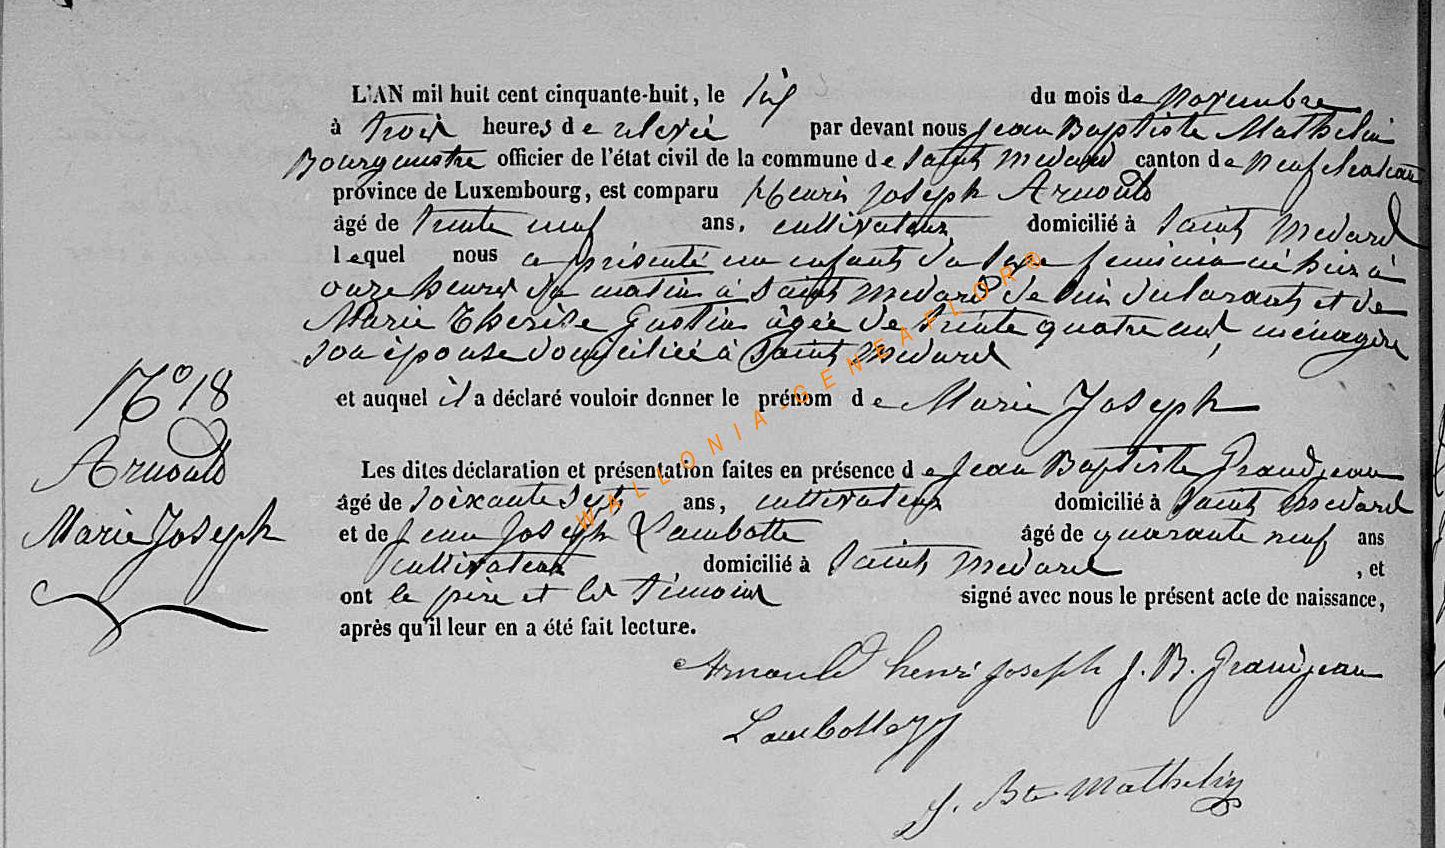 L'AN mil huit cent cinquante-huit, le six du mois de novembre
à trois heures de relevée par devant nous Jean Baptiste Mathelin
Bourgmestre officier de l'état civil de la commune de Saint Médard canton de Neufchateau
province de Luxembourg, est comparu Henri Joseph Arnould
âgé de trente neuf ans, cultivateur domicilié à Saint Médard
lequel nous a présenté un enfant du sexe féminin né hier à
onze heures du matin à Saint Médard de lui déclarant et de
Marie Therèse Gustin âgée de trente quatre ans, ménagère
son épouse domiciliée à Saint Médard
et auquel il a déclaré vouloir donner le prénom de Marie Joseph
N° 18
Arnould
Marie Joseph
Les dites déclaration et présentation faites en présence de Jean Baptiste Grandjean
âgé de soixante sept ans, cultivateur domicilié à Saint Médard
et de Jean Joseph Lambotte âgé de quarante neuf ans
cultivateur domicilié à Saint Médard, et
ont le père et les témoins signé avec nous le présent acte de naissance,
après qu'il leur en a été fait lecture.
Arnould henri joseph J. B. Grandjean
Lambotte JJ
J. Bte Mathelin
WALLONIA-GENEAFLOR®